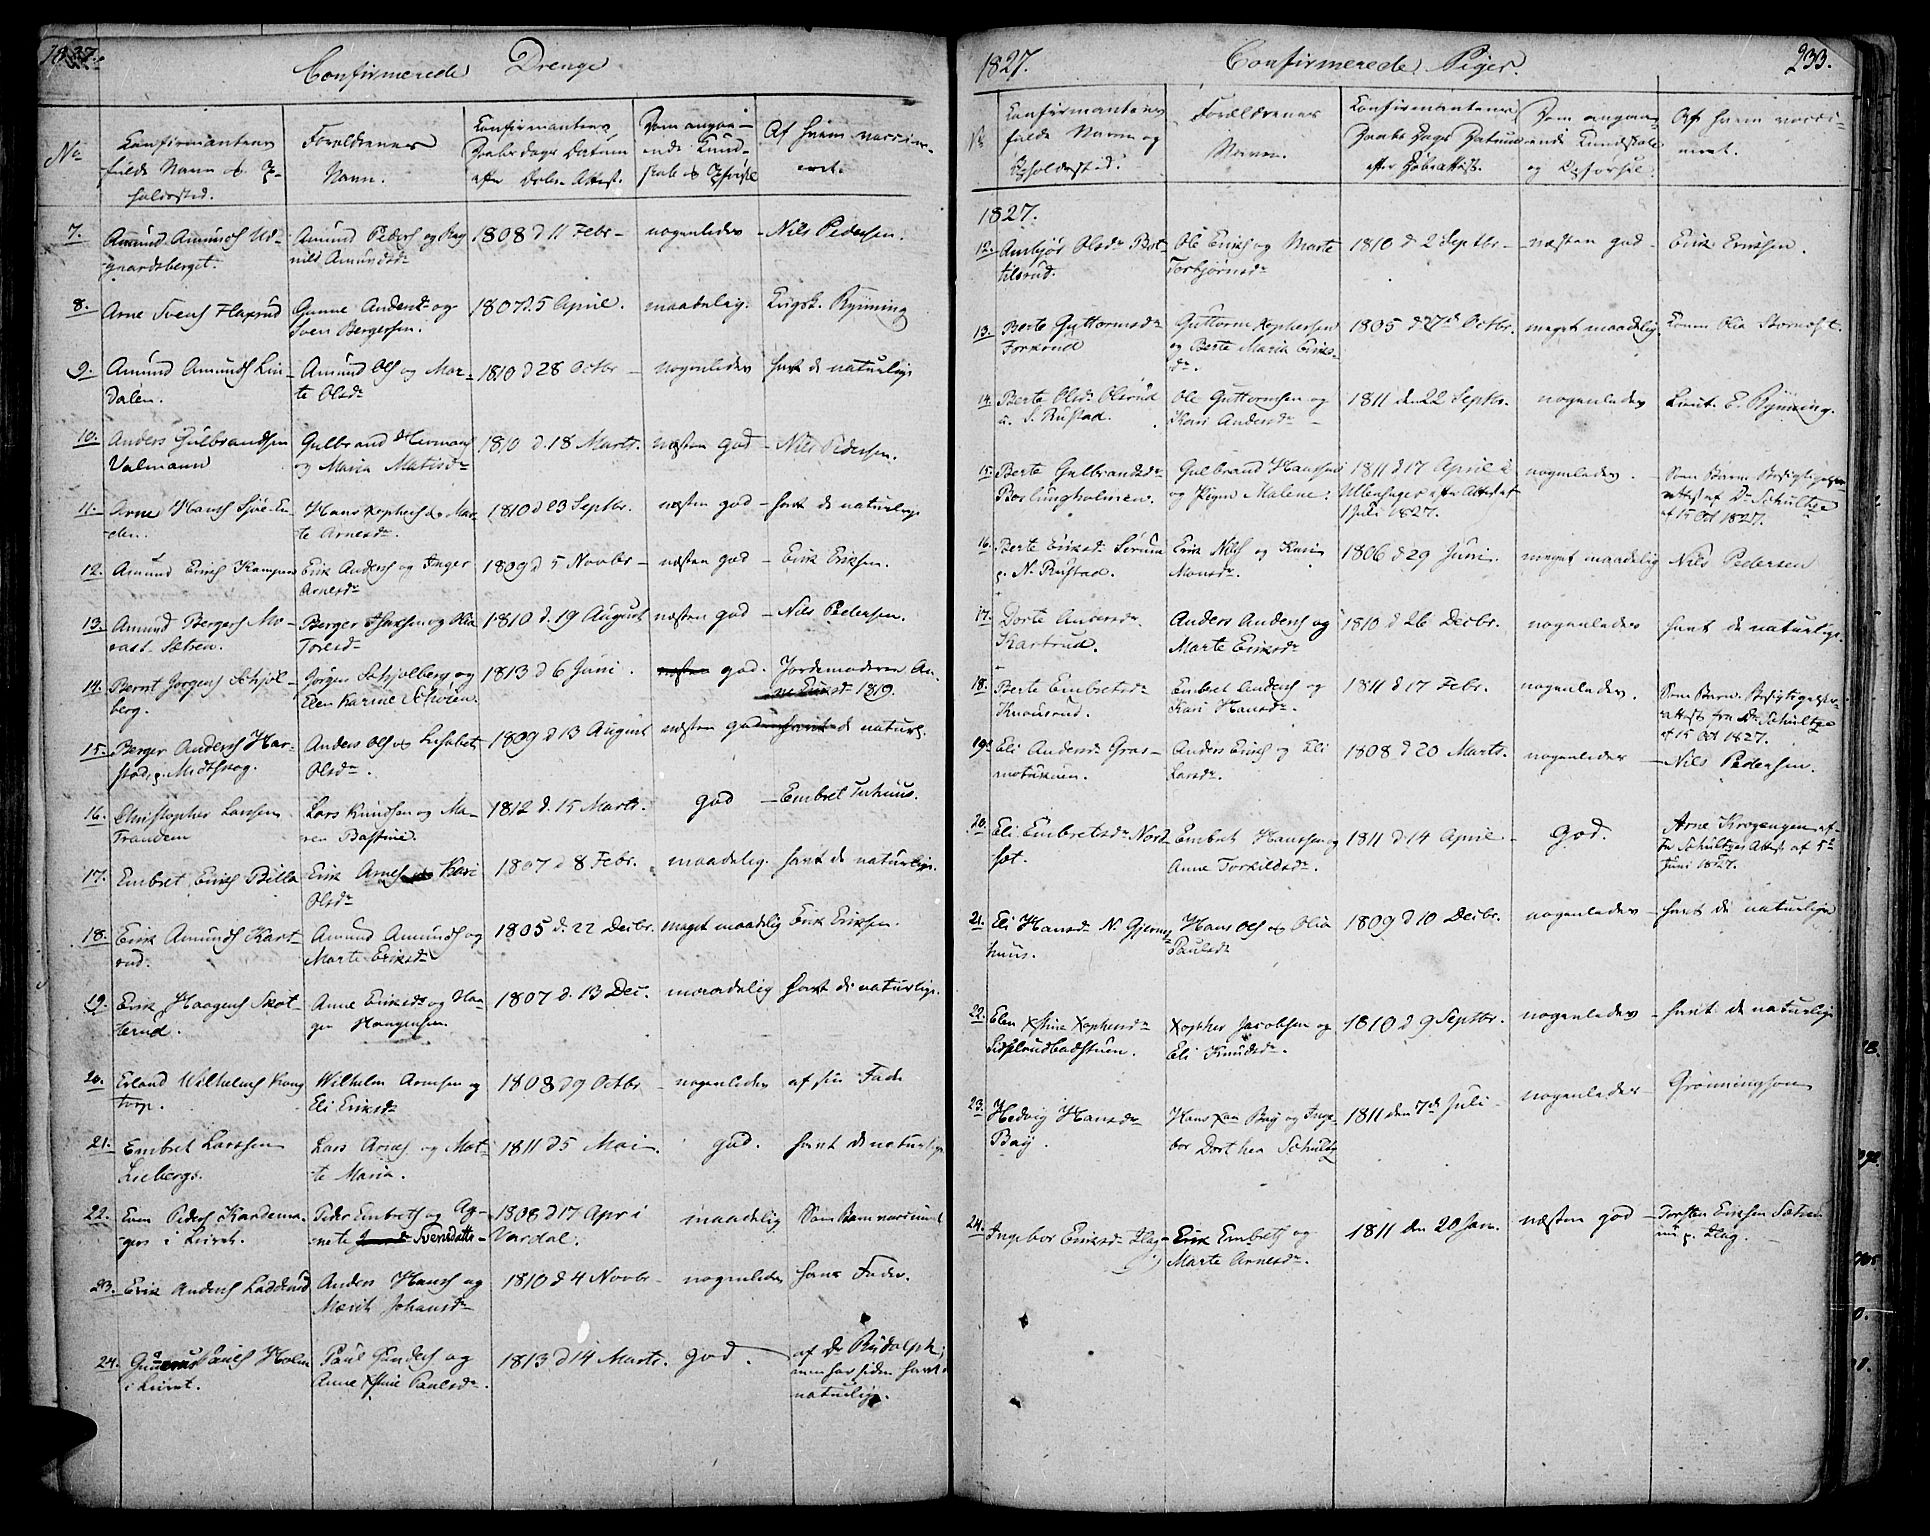 1827.
Confirmerede Drenge
No
Confirmantens
fulde Navn og Op-
holdssted.
Forældrenes
Navn.
Confirmantens
Daabs Dags Datum
efter Døbe Attest.
Dom angaa-
ende Kund-
skab og Opførsel
Af hvem vaccine-
eret.
7. Amund Amunds Ud-
gaardsberget.
Amund Peders og Rag
nild Amundsdr
1808 d 11 Febr -
nogenledes
- Nils Pedersen.
8. Arne Svens Flaxrud
Gunne Andersdr og
Sven Bergersen.
1807 d. 5 April.
maadelig.
Krigsk. Rynning
9. Amund Amunds Lin-
dalen.
Amund Ols og Mar-
te Olsdr
1810 d 28 Octbr -
nogenledes
havt de naturlige
10. Anders Gulbrandsen
Valmann
Gulbrand Hermans
og Maria Matisdr
1810 d. 18 Marts.
næsten god
- Nils Pedersen.
11. Arne Hans Sjøe-En-
den.
Hans Xophers og Mar-
te Arnesdr.
1810 d 23 Septbr.
næsten god
- havt de naturlige
12. Amund Erichs Kampen
Erik Anders og Inger
Arnesdr
1809 d 5 Novbr -
næsten god
- Erik Eriksen.
13. Amund Bergers Mo-
rast. Sætren.
Berger Isaksen og Olia
Toresdr
1810 d. 19 August
næsten god
- Nils Pedersen.
14. Bernt Jørgens Schjøl-
berg.
Jørgen Schjølberg og
Elen Karine Schøien.
1813 d 6 Juni.
næsten god.
Jordemoderen An-
ne Eriksdr 1819.
15. Berger Anders Har-
stad, p. Midtskog.
Anders Ols og Lisabet
Olsdr.
1809 d 13 August
næsten god
havt de naturl.
16. Christopher Larssen
Trandem
Lars Knudsen og Ma-
ren Bastine.
1812 d. 15 Marts.
god
- Embret Tuhuus.
17. Embret Erichs Billa
Erik Arnes og Kari
Olsdr
1807 d 8 Febr.
maadelig.
havt de naturlige.
18. Erik Amunds Kart-
rud.
Amund Amunds og
Marte Eriksdr
1805 d. 22 Decbr.
meget maadelig
Erik Eriksen.
19. Erik Haagens Skot-
terud.
Anne Eriksdr og Haa-
gen Haagensen.
1807 d. 13 Dec.
maadelig
havt de naturlige.
20. Erland Wilhelms Kong
torp.
Wilhelm Arnesen og
Eli Eriksdr
1808 d 9 Octbr.
nogenledes
af sin Fader
21. Embret Larssen
Lieberg.
Lars Arnes og Mar-
te Maria.
1811 d 5 Mai.
god.
havt de naturlige
22. Even Peders Kandema-
gør i Leiret.
Peder Embrets og Ag-
nete Svensdatter
1808 d 17 Apr i
Vardal.
maadelig
Som Barn vaccineret
23. Erik Anders Laddrud
Anders Hans og
Marit Johansdr
1810 d 4 Novbr -
nogenledes
hans Fader.
24. Gunerus Pauls Holm
i Leiret.
Paul Gunders og
Anne Xstine Paulsdr.
1813 d 14 Marts.
god.
af Dr Rudolph;
men har siden havt
naturlige.
1827.
Confirmerede Piger.
233.
No
Confirmantens
fulde Navn og
Opholdssted.
Forældrenes
Navn.
Confirmantens
Daabs Dags Datum
efter Døbeattest.
Dom angaa-
ende Kundskab
og Opførsel.
Af hvem vacci-
neret.
1827.
12. Ambjør Olsdr Bot-
tilsrud.
Ole Eriks og Marte
Torbjørnsdr
1810 d 2 Septbr -
næsten god
- Erik Eriksen.
13. Berte Guttormsdr
Forkrud
Guttorm Xophersen
og Berte Maria Eriks-
dr.
1805 d 27d Octbr.
meget maadelig.
Enken Olia Stornæset.
14. Berte Olsdr Olsrud
u. S. Rustad.
Ole Guttormsen og
Kari Andersdr -
1811 den 22 Septbr.
nogenledes
Lieut. E. Rynning.
15. Berte Gulbrandsdr
Borlungholmen.
Gulbrand Hansen
og Pigen Malene.
1811 d 17 April i
Ullensager efter Attest af
1 Juli 1827.
nogenledes.
Som Barn. Besigtigelses-
attest af Dr Schultze
af 15 Oct 1827.
16. Berte Eriksdr Sørum
p. N. Rustad.
Erik Nils og Kari
Monsdr.
1806 d 29 Juni.
meget maadelig
Nils Pedersen
17. Dorte Andersdr
Kartrud.
Anders Anders og
Marte Eriksdr
1810 d 26 Decbr.
nogenledes
havt de naturlige.
18. Berte Embretsdr
Knausrud.
Embret Anders og
Kari Hansdr.
1811 d 17 Febr.
nogenledes.
Som Barn. Besigtigelses-
attest fra Dr Schultze
af 15 Oct 1827.
19. Eli Andersdr Gras-
motuen.
Anders Erichs og Eli
Larsdr.
1808 d 20 Marts.
nogenledes
- Nils Pedersen.
20. Eli Embretsdr Nord-
set.
Embret Hanssen og
Anne Torkildsdr.
1811 d 14 April -
God.
Arne Krogengen ef-
ter Schultzes Attest af 5te
Juni 1827.
21. Eli Hansdr N. Gjerms-
huus.
Hans Ols og Olia
Paulsdr
1809 d 10 Decbr.
nogenledes
- havt de naturlige
22. Elen Xstine Xophersdr
Xopher Jacobsen og
Eli Knudsdr.
1810 d 9 Septbr.
nogenledes
- havt de naturlige
23. Hedvig Hansdr
Bay.
Hans Xian Bay og Inge-
bor Dorthea Schultz
1811 den 7de Juli -
nogenledes
- Grønningson
24. Ingebor Eriksdr Flag-
Erik Embrets og
Marte Arnesdr.
1811 den 20 Jan.
næsten god
- Torsten Eriksen Sætre
p. Flag.